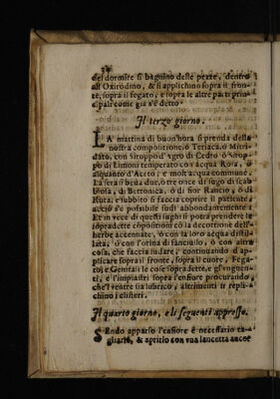 del dormire si bagnino delle pezze, dentro
all'Oxirodino, & si applichino sopra il fron-
te, sopra il fegato, e sopra le altre parti prin-
cipali come già s'è detto.
Il terzo giorno.
LA mattina di buon'hora si prenda della
nostra compositione, ò Teriaca, ò Mitri-
dato, con Siroppo d'agro di Cedro, ò Sirop-
po di Limoni temperato con acqua Rosa, &
alquanto d'Aceto, e molt'acqua commune.
La sera si beva due, ò tre once di sugo di Scab-
biosa, di Bettonica, ò di fior Rancio, ò di
Ruta, e subbito si faccia coprire il patiente,
acciò s'è possibile sudi abbondantemente.
Et in vece di questi sughi si potrà prendere le
sopradette cōpositioni cō la decottione dell'
herbe accennate, ò cō la loro acqua distil-
lata, ò con l'orina di fanciullo, ò con altra
cosa, che faccia sudare, continuando d'ap-
plicare sopra il fronte, sopra il cuore, Fega-
to, e Genitali le cose sopradette, e gl'unguen-
ti, e l'impiastri sopra l'enfiore procurando,
che'l ventre sia lubrico, altrimenti si repli-
chino i clisteri.
Il quarto giorno, e li seguenti appresso.
SEndo apparso l'enfiore è necessario ta-
gliarlo, & aprirlo con una lancetta anco-